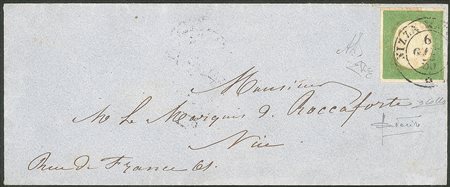 NIZZA
6
GEN
Monsieur
M. Le Marquis d. Roccaforte
Nice
Rue de France 61.